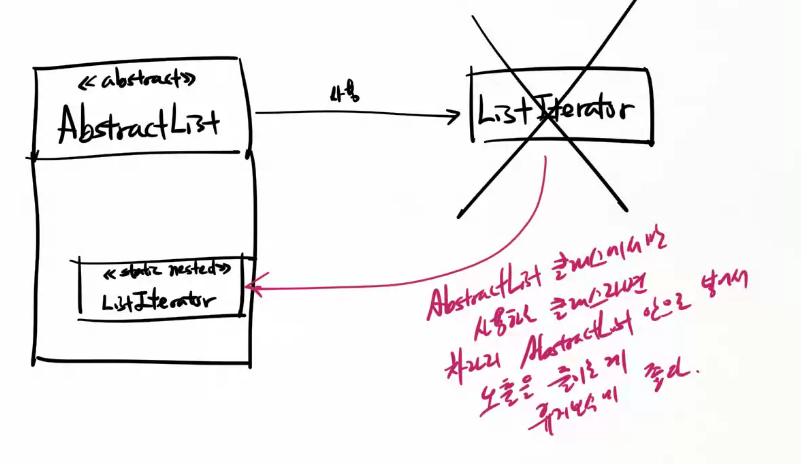 <<abstract>>
AbstractList
사용
ListIterator
<<static nested>>
ListIterator
AbstractList 클래스에서만
사용하는 클래스라면
차라리 AbstractList 안으로 넣어서
노출을 줄이는게 좋다.
유지보수에